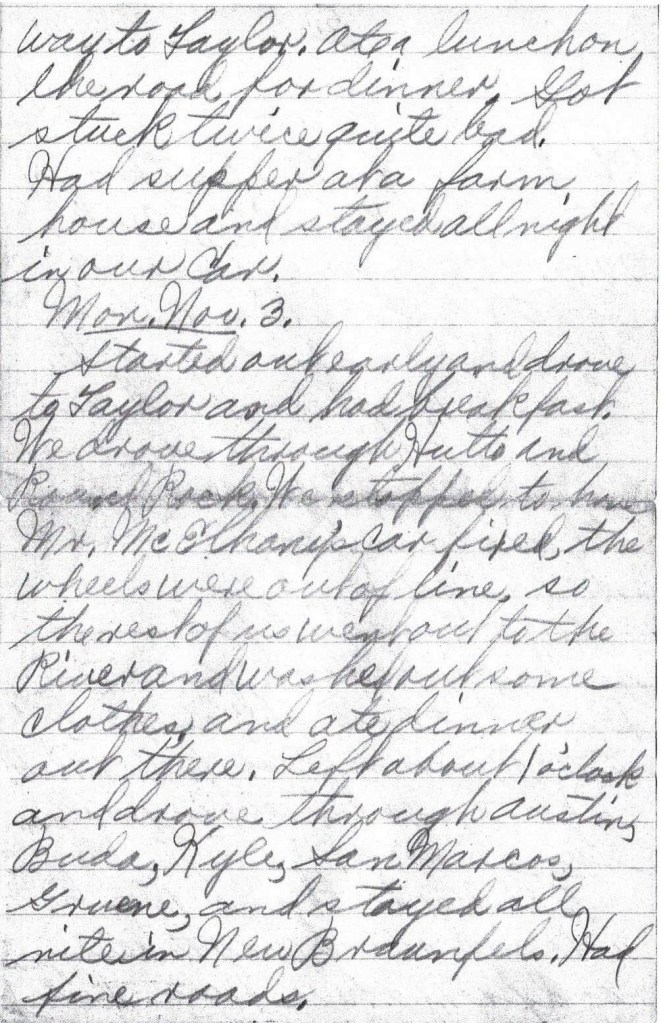 way to Taylor. Ate a lunch on
the road for dinner. Got
stuck twice quite bad.
Had supper at a farm
house and stayed all night
in our Car.
Mon. Nov. 3.
Started out early and drove
to Taylor and had breakfast.
We drove through Hutto and
Round Rock. We stopped to have
Mr. McElhany's car fixed, the
wheels were out of line, so
the rest of us went out to the
River and washed out some
clothes, and ate dinner
out there. Left about 1 o'clock
and drove through Austin,
Buda, Kyle, San Marcos,
Gruene, and stayed all
nite in New Braunfels. Had
fine roads.